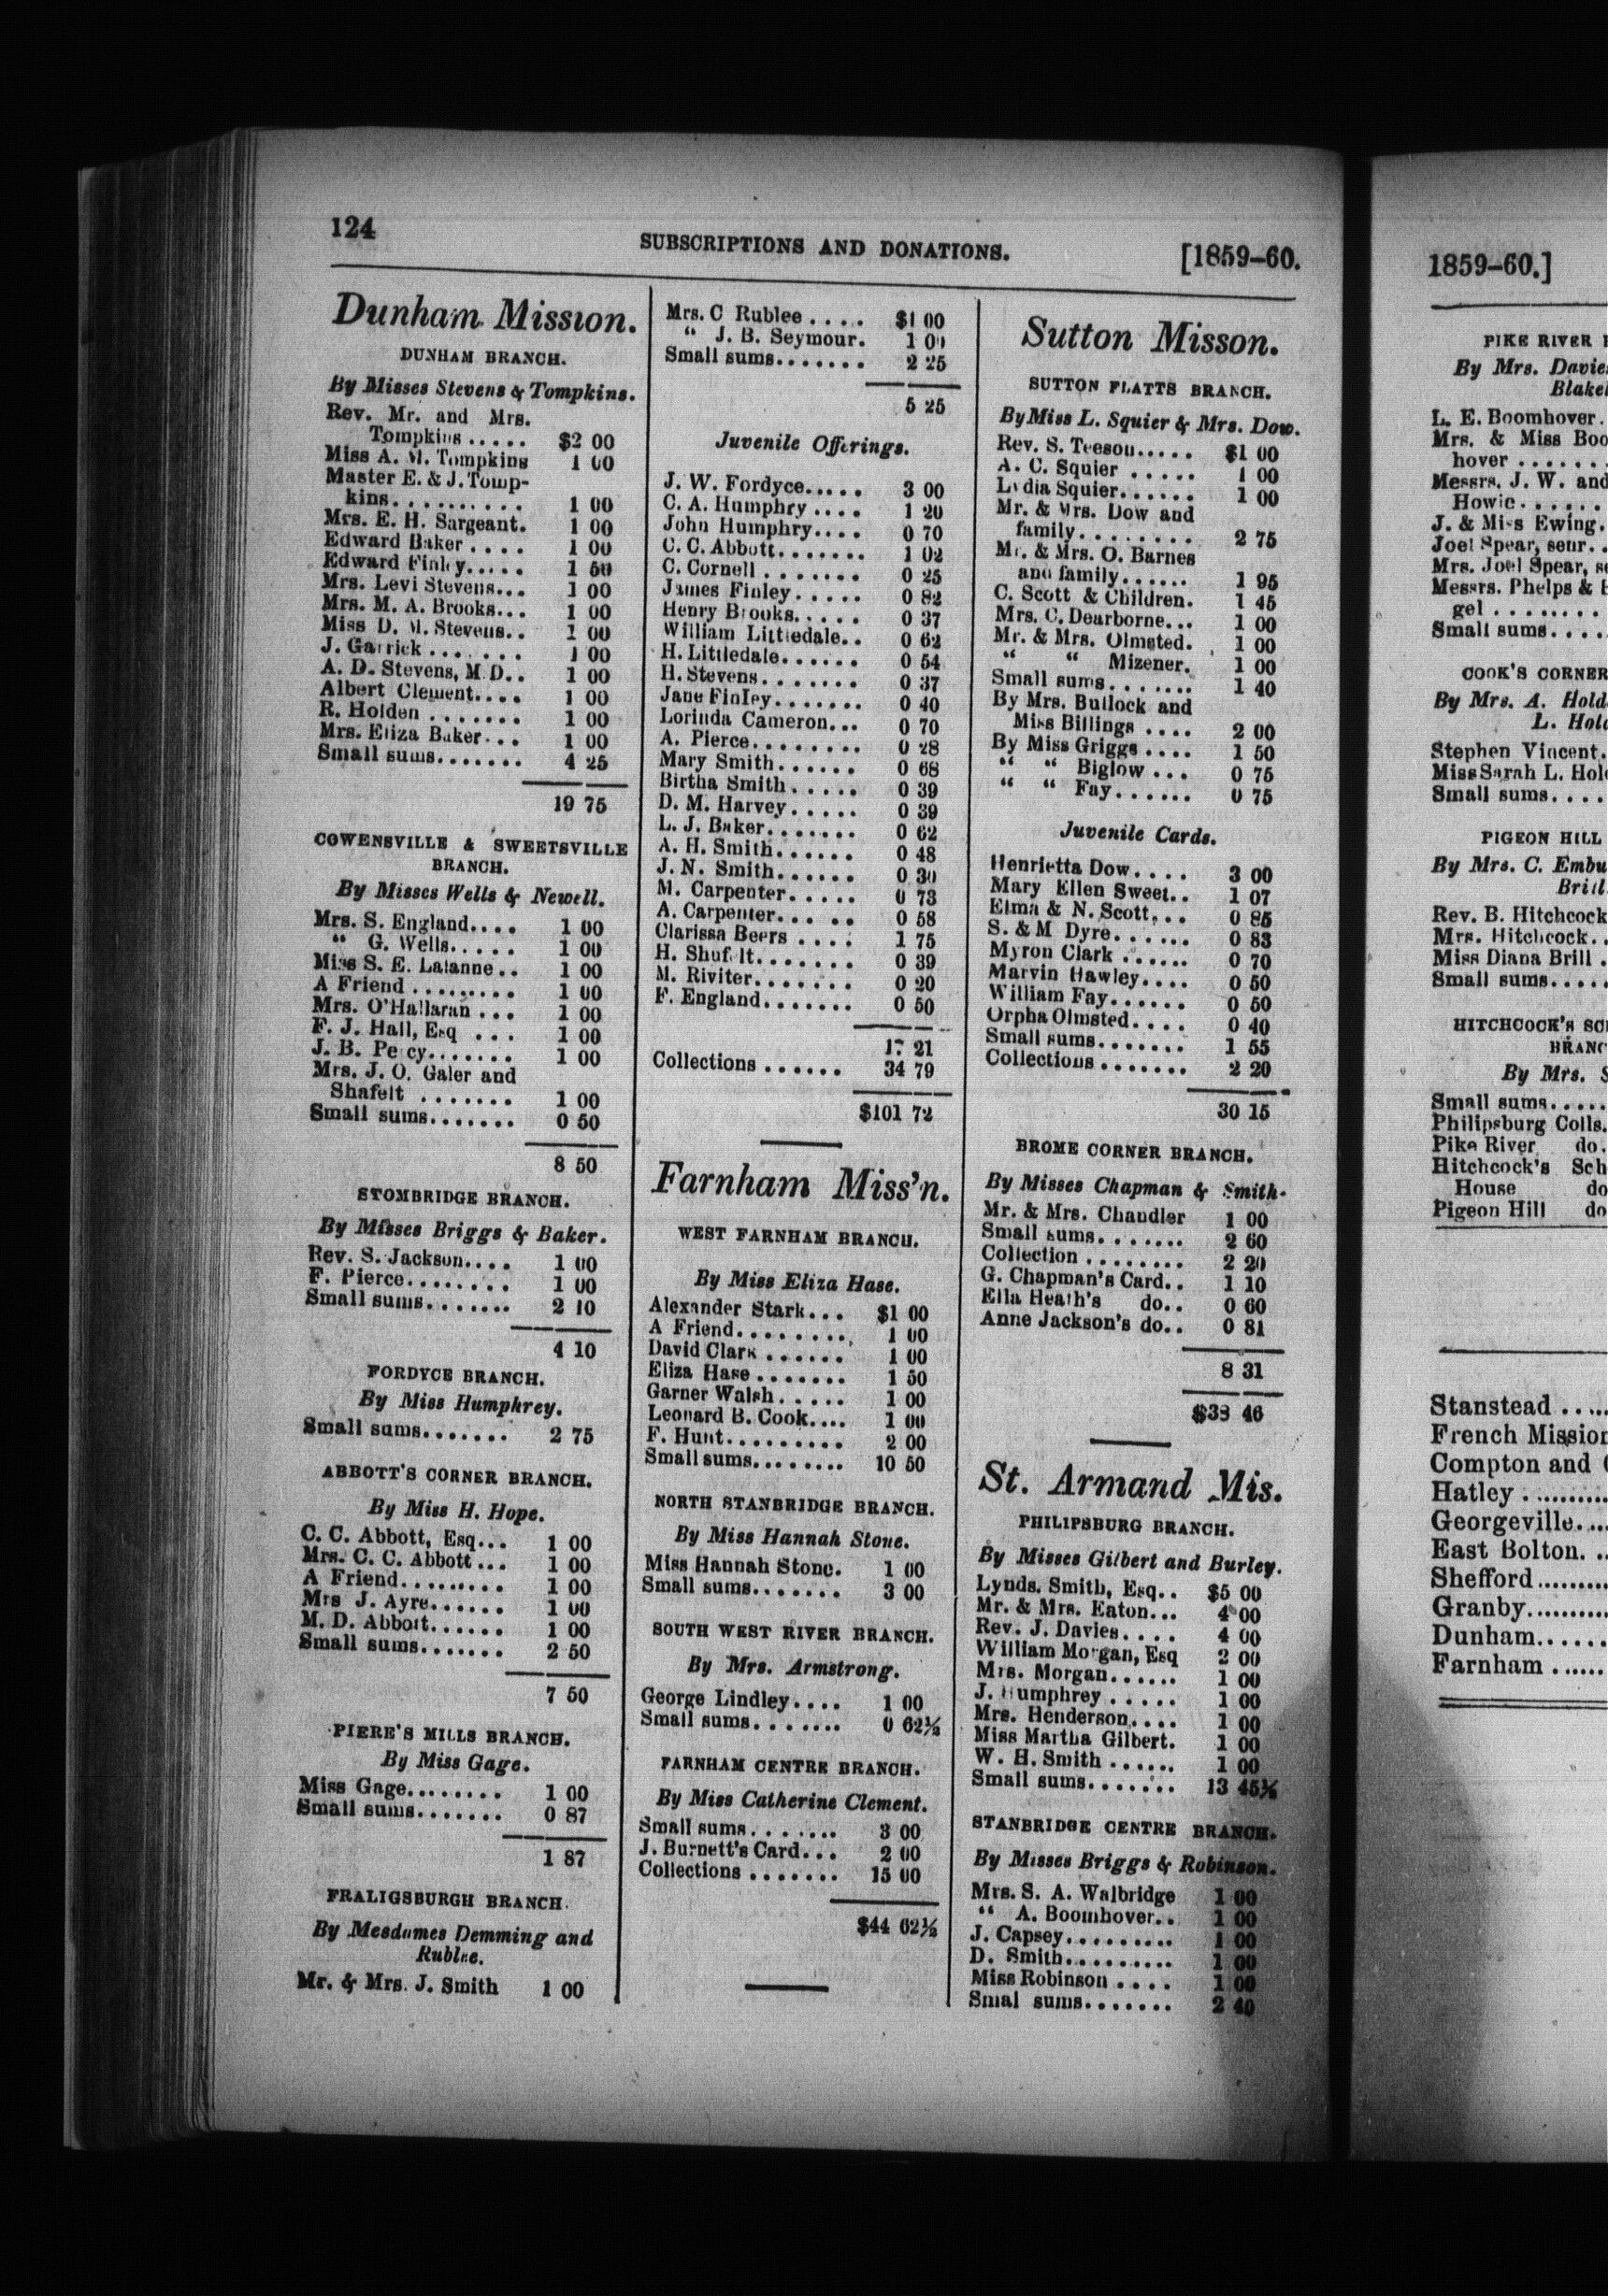 124
SUBSCRIPTIONS AND DONATIONS.
[1859-60.
Dunham Mission.
DUNHAM BRANCH.
By Misses Stevens & Tompkins.
Rev. Mr. and Mrs.
Tompkins ..... $2 00
Miss A. M. Tompkins 1 00
Master E. & J. Tomp-
kins.......... 1 00
Mrs. E. H. Sargeant. 1 00
Edward Baker .... 1 00
Edward Finley..... 1 50
Mrs. Levi Stevens... 1 00
Mrs. M. A. Brooks... 1 00
Miss D. M. Stevens.. 1 00
J. Garrick ........ 1 00
A. D. Stevens, M.D.. 1 00
Albert Clement.... 1 00
R. Holden ....... 1 00
Mrs. Eliza Baker... 1 00
Small sums....... 4 25
19 75
COWENSVILLE & SWEETSVILLE
BRANCH.
By Misses Wells & Newell.
Mrs. S. England.... 1 00
“ G. Wells..... 1 00
Miss S. E. Lalanne.. 1 00
A Friend ......... 1 00
Mrs. O'Hallaran ... 1 00
F. J. Hall, Esq ... 1 00
J. B. Percy....... 1 00
Mrs. J. O. Galer and
Shafelt ....... 1 00
Small sums....... 0 50
8 50
STOMBRIDGE BRANCH.
By Misses Briggs & Baker.
Rev. S. Jackson.... 1 00
F. Pierce........ 1 00
Small sums....... 2 10
4 10
FORDYCE BRANCH.
By Miss Humphrey.
Small sums....... 2 75
ABBOTT'S CORNER BRANCH.
By Miss H. Hope.
C. C. Abbott, Esq... 1 00
Mrs. C. C. Abbott ... 1 00
A Friend......... 1 00
Mrs J. Ayre...... 1 00
M. D. Abbott...... 1 00
Small sums....... 2 50
7 50
PIERE'S MILLS BRANCH.
By Miss Gage.
Miss Gage........ 1 00
Small sums....... 0 87
1 87
FRALIGSBURGH BRANCH.
By Mesdames Demming and
Rublee.
Mr. & Mrs. J. Smith 1 00
Mrs. C Rublee .... $1 00
“ J. B. Seymour. 1 00
Small sums....... 2 25
5 25
Juvenile Offerings.
J. W. Fordyce..... 3 00
C. A. Humphry .... 1 20
John Humphry.... 0 70
C. C. Abbott....... 1 02
C. Cornell ....... 0 25
James Finley..... 0 82
Henry Brooks..... 0 37
William Littledale.. 0 62
H. Littledale...... 0 54
H. Stevens....... 0 37
Jane Finley....... 0 40
Lorinda Cameron... 0 70
A. Pierce........ 0 28
Mary Smith...... 0 68
Birtha Smith ..... 0 39
D. M. Harvey ..... 0 39
L. J. Baker....... 0 62
A. H. Smith...... 0 48
J. N. Smith...... 0 30
M. Carpenter..... 0 73
A. Carpenter...... 0 58
Clarissa Beers .... 1 75
H. Shufelt....... 0 39
M. Riviter....... 0 20
F. England....... 0 50
17 21
Collections ...... 34 79
$101 72
Farnham Miss'n.
WEST FARNHAM BRANCH.
By Miss Eliza Hase.
Alexander Stark... $1 00
A Friend......... 1 00
David Clark ...... 1 00
Eliza Hase ....... 1 50
Garner Walsh..... 1 00
Leonard B. Cook.... 1 00
F. Hunt......... 2 00
Small sums........ 10 50
NORTH STANBRIDGE BRANCH.
By Miss Hannah Stone.
Miss Hannah Stone. 1 00
Small sums....... 3 00
SOUTH WEST RIVER BRANCH.
By Mrs. Armstrong.
George Lindley.... 1 00
Small sums....... 0 62½
FARNHAM CENTRE BRANCH.
By Miss Catherine Clement.
Small sums....... 3 00
J. Burnett's Card... 2 00
Collections ....... 15 00
$44 62½
Sutton Misson.
SUTTON FLATTS BRANCH.
By Miss L. Squier & Mrs. Dow.
Rev. S. Teeson..... $1 00
A. C. Squier ..... 1 00
Lydia Squier...... 1 00
Mr. & Mrs. Dow and
family......... 2 75
Mr. & Mrs. O. Barnes
and family...... 1 95
C. Scott & Children. 1 45
Mrs. C. Dearborne... 1 00
Mr. & Mrs. Olmsted. 1 00
“ “ Mizener. 1 00
Small sums....... 1 40
By Mrs. Bullock and
Miss Billings .... 2 00
By Miss Griggs .... 1 50
“ “ Biglow ... 0 75
“ “ Fay...... 0 75
Juvenile Cards.
Henrietta Dow.... 3 00
Mary Ellen Sweet.. 1 07
Elma & N. Scott... 0 85
S. & M Dyre...... 0 83
Myron Clark ...... 0 70
Marvin Hawley.... 0 50
William Fay...... 0 50
Orpha Olmsted.... 0 40
Small sums....... 1 55
Collections ....... 2 20
30 15
BROME CORNER BRANCH.
By Misses Chapman & Smith.
Mr. & Mrs. Chandler 1 00
Small sums....... 2 60
Collection ........ 2 20
G. Chapman's Card.. 1 10
Ella Heath's do.. 0 60
Anne Jackson's do.. 0 81
8 31
$38 46
St. Armand Mis.
PHILIPSBURG BRANCH.
By Misses Gilbert and Burley.
Lynds. Smith, Esq.. $5 00
Mr. & Mrs. Eaton... 4 00
Rev. J. Davies.... 4 00
William Morgan, Esq 2 00
Mrs. Morgan...... 1 00
J. Humphrey ..... 1 00
Mrs. Henderson.... 1 00
Miss Martha Gilbert. 1 00
W. H. Smith ...... 1 00
Small sums....... 13 45½
STANBRIDGE CENTRE BRANCH.
By Misses Briggs & Robinson.
Mrs. S. A. Walbridge 1 00
“ A. Boomhover.. 1 00
J. Capsey......... 1 00
D. Smith......... 1 00
Miss Robinson .... 1 00
Smal sums....... 2 40
1859-60.]
PIKE RIVER
By Mrs. Davies
L. E. Boomhover.
Mrs. & Miss Boo
hover .......
Messrs. J. W. and
Howie......
J. & Miss Ewing.
Joel Spear, senr..
Mrs. Joel Spear,
Messrs. Phelps &
gel ........
Small sums....
COOK'S CORNER
By Mrs. A. Hold
L. Hol
Stephen Vincent.
Miss Sarah L. Hol
Small sums....
PIGEON HILL
By Mrs. C. Embu
Brill
Rev. B. Hitchcock
Mrs. Hitchcock..
Miss Diana Brill .
Small sums.....
HITCHCOCK'S
BRANC
By Mrs.
Small sums.....
Philipsburg Colls.
Pike River do.
Hitchcock's Sch
House do
Pigeon Hill do
Stanstead .....
French Mission
Compton and
Hatley ..........
Georgeville....
East Bolton. ..
Shefford.........
Granby..........
Dunham......
Farnham ......